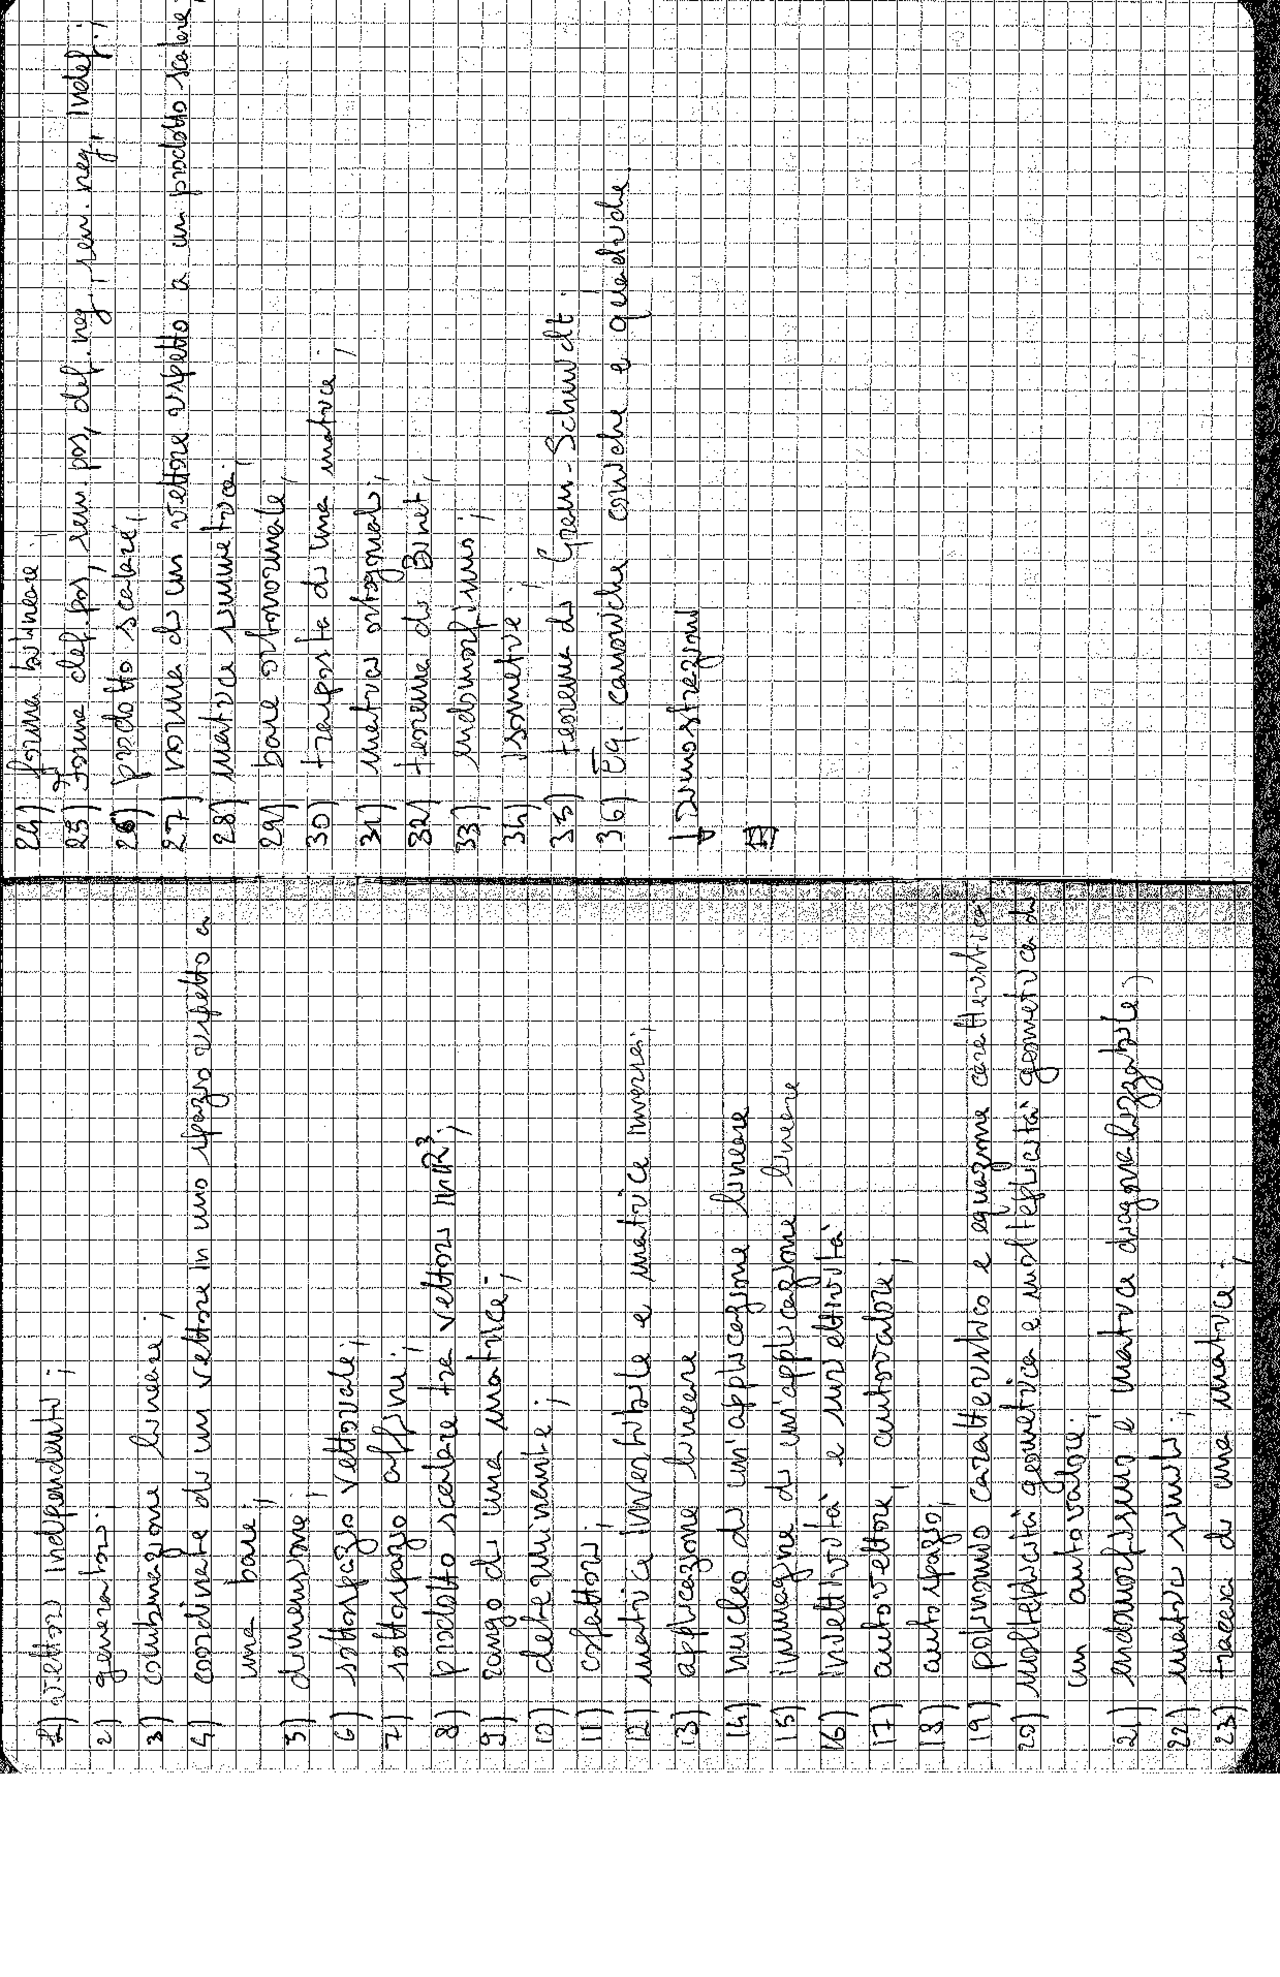 1) vettori indipendenti;
2) generatori;
3) combinazione lineare;
4) coordinate di un vettore in uno spazio rispetto a
una base;
5) dimensione;
6) sottospazio vettoriale;
7) sottospazio affine;
8) prodotto scalare tra vettori in R³;
9) rango di una matrice;
10) determinante;
11) cofattori;
12) matrice invertibile e matrice inversa;
13) applicazione lineare
14) nucleo di un'applicazione lineare
15) immagine di un'applicazione lineare
16) iniettività e suriettività
17) autovettore, autovalore;
18) autospazio;
19) polinomio caratteristico e equazione caratteristica
20) molteplicità geometrica e molteplicità geometrica di
un autovalore;
21) endomorfismi e matrici diagonalizzabile;
22) matrici simili;
23) traccia di una matrice;
24) forma bilineare
25) forme def. pos, sem pos, def. neg., sem. neg, indef.;
26) prodotto scalare;
27) norma di un vettore rispetto a un prodotto scalare;
28) matrice simmetrica;
29) base ortonormale;
30) trasposta di una matrice;
31) matrici ortogonali;
32) teorema di Binet;
33) endomorfismo;
34) isometrie
35) teorema di Gram-Schmidt.
36) Eq. canoniche coniche e quadriche
Dimostrazioni